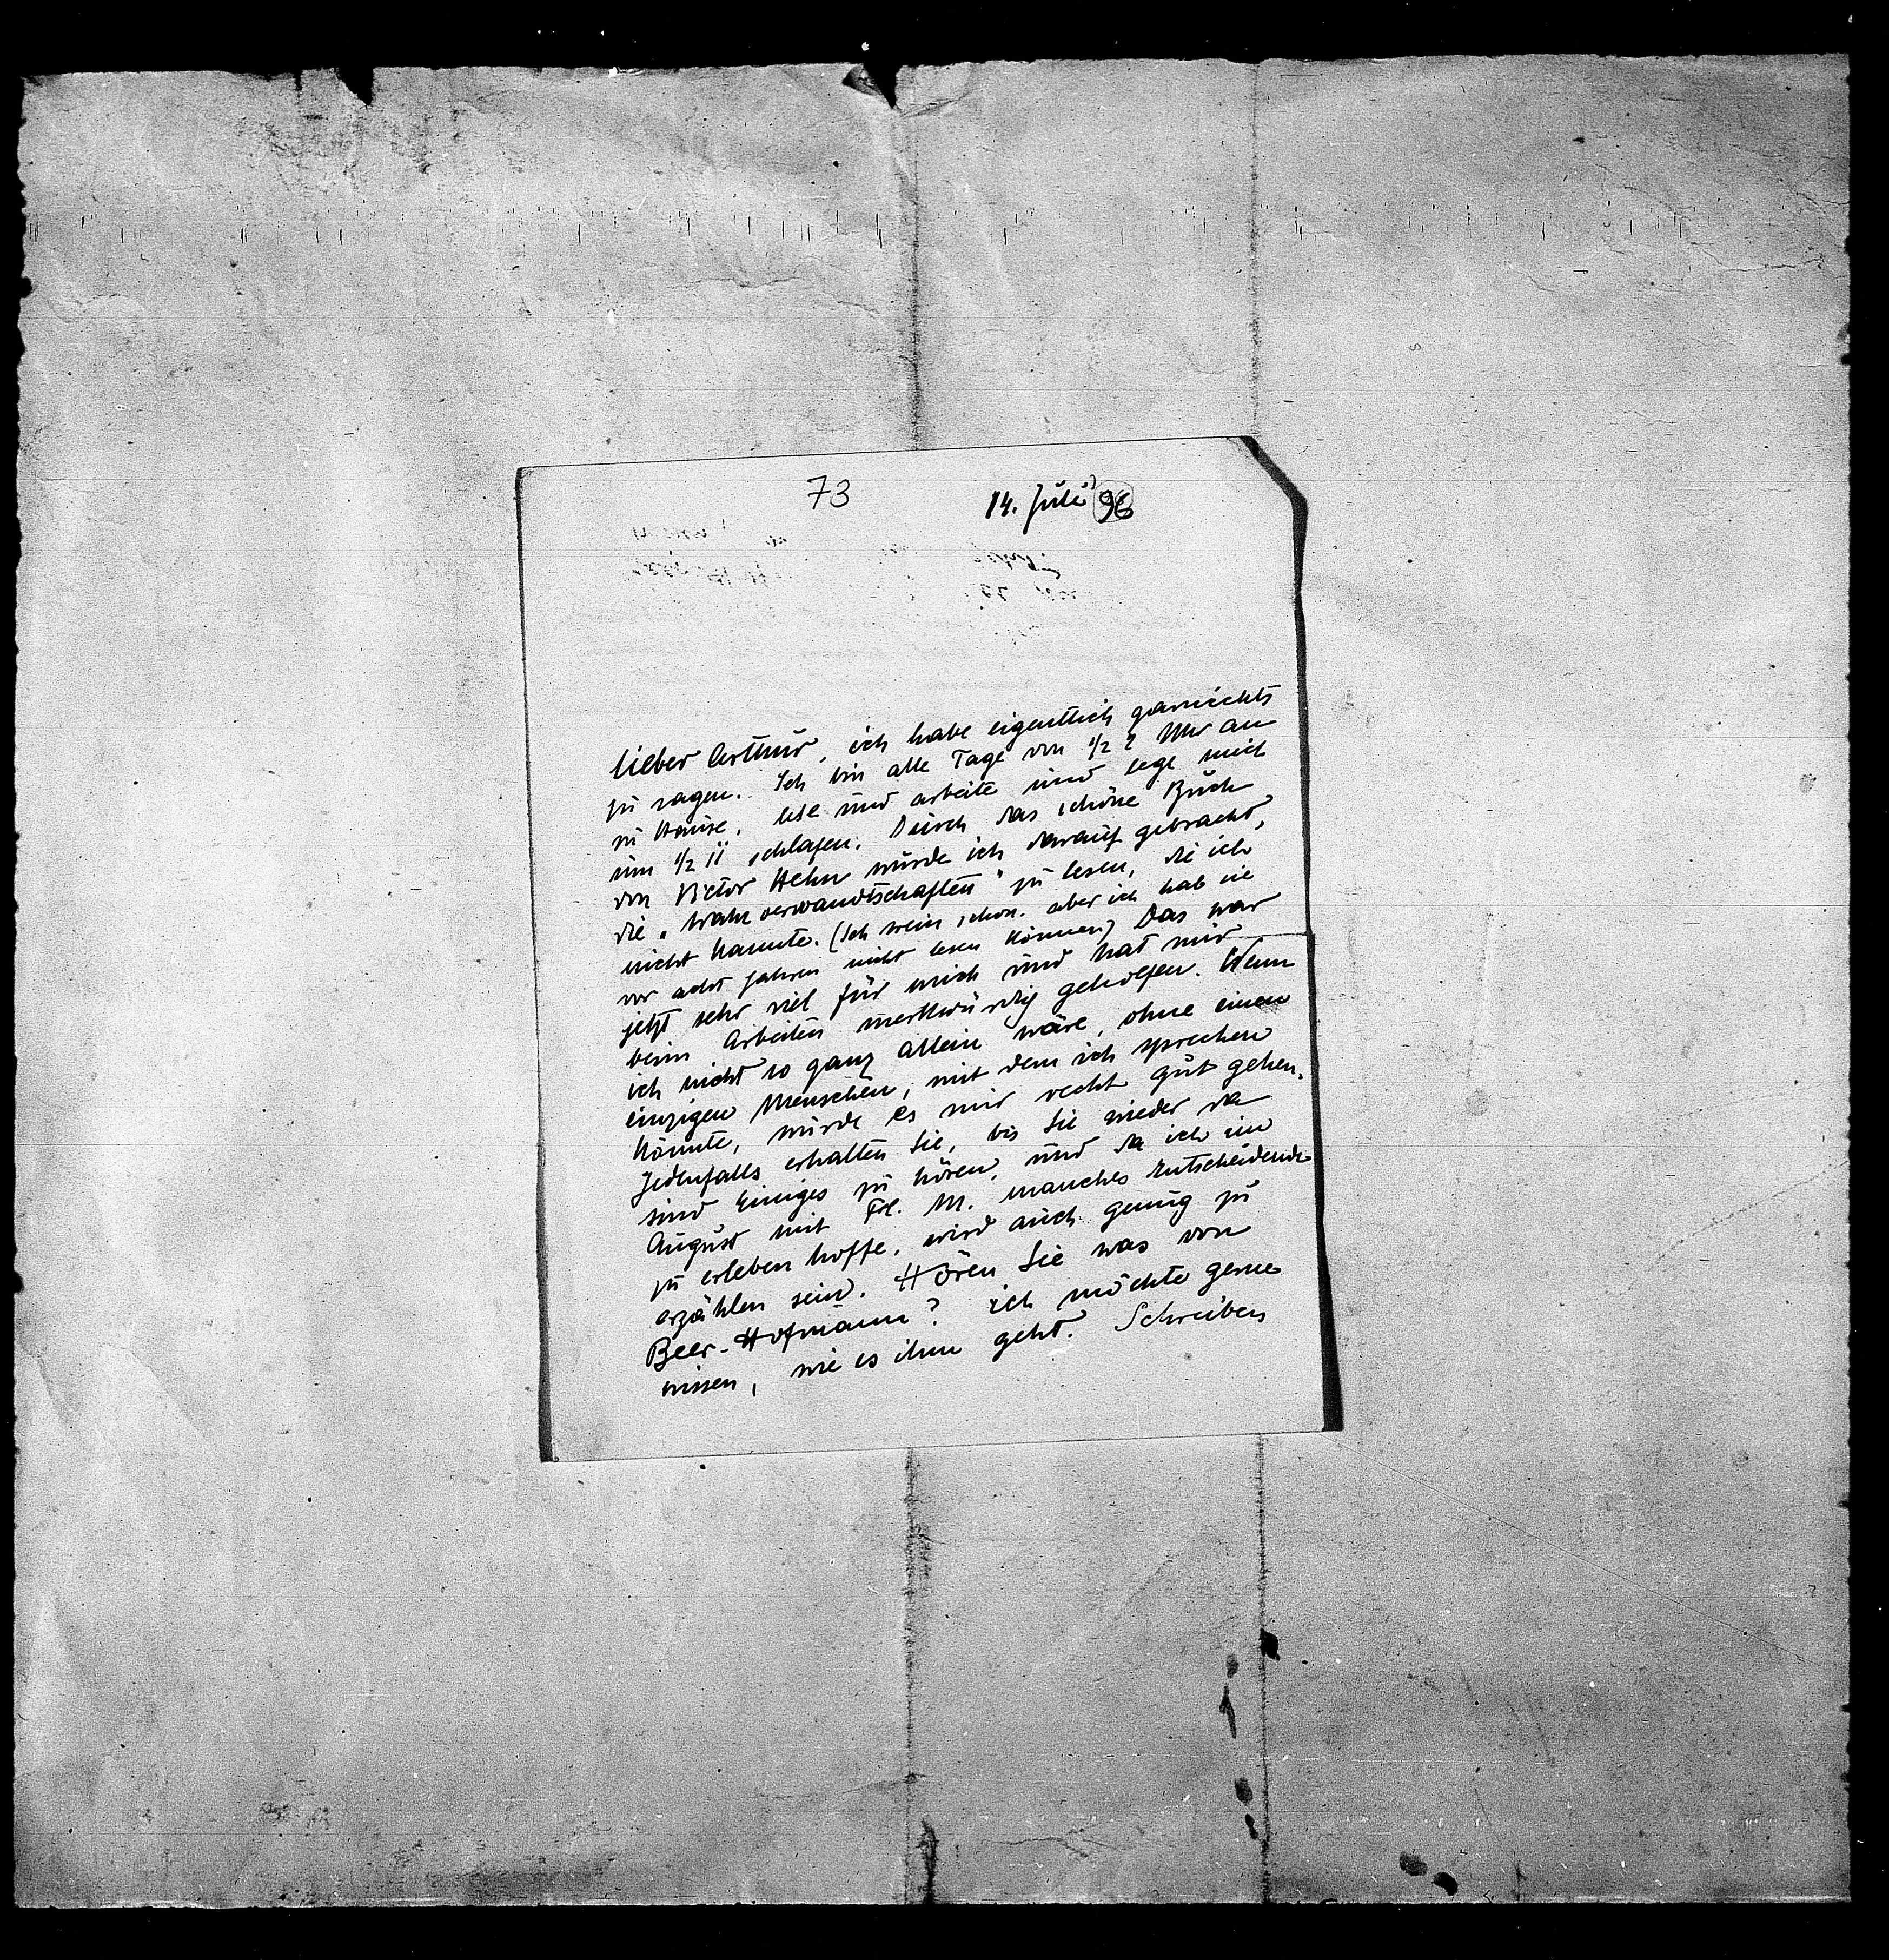 73
14. Juli 96
lieber Arthur, ich habe eigentlich garnichts
zu sagen. Ich bin alle Tage von 1/2 7 Uhr an
zu Hause, lese und arbeite und lege mich
um 1/2 11 schlafen. Durch das schöne Buch
von Victor Hehn wurde ich darauf gebracht,
die „Wahlverwandtschaften" zu lesen, die ich
nicht kannte. (Ich weiß schon. aber ich hab sie
vor acht Jahren nicht lesen können) Das war
jetzt sehr viel für mich und hat mir
beim Arbeiten merkwürdig geholfen. Wenn
ich nicht so ganz allein wäre, ohne einen
einzigen Menschen, mit dem ich sprechen
könnte, würde es mir recht gut gehen.
Jedenfalls erhalten Sie, bis Sie wieder da
sind Einiges zu hören, und da ich im
August mit Frl. M. manches Entscheidende
zu erleben hoffe, wird auch genug zu
erzählen sein. Hören Sie was von
Beer-Hofmann? ich möchte gerne
wissen, wie es ihm geht. Schreiben